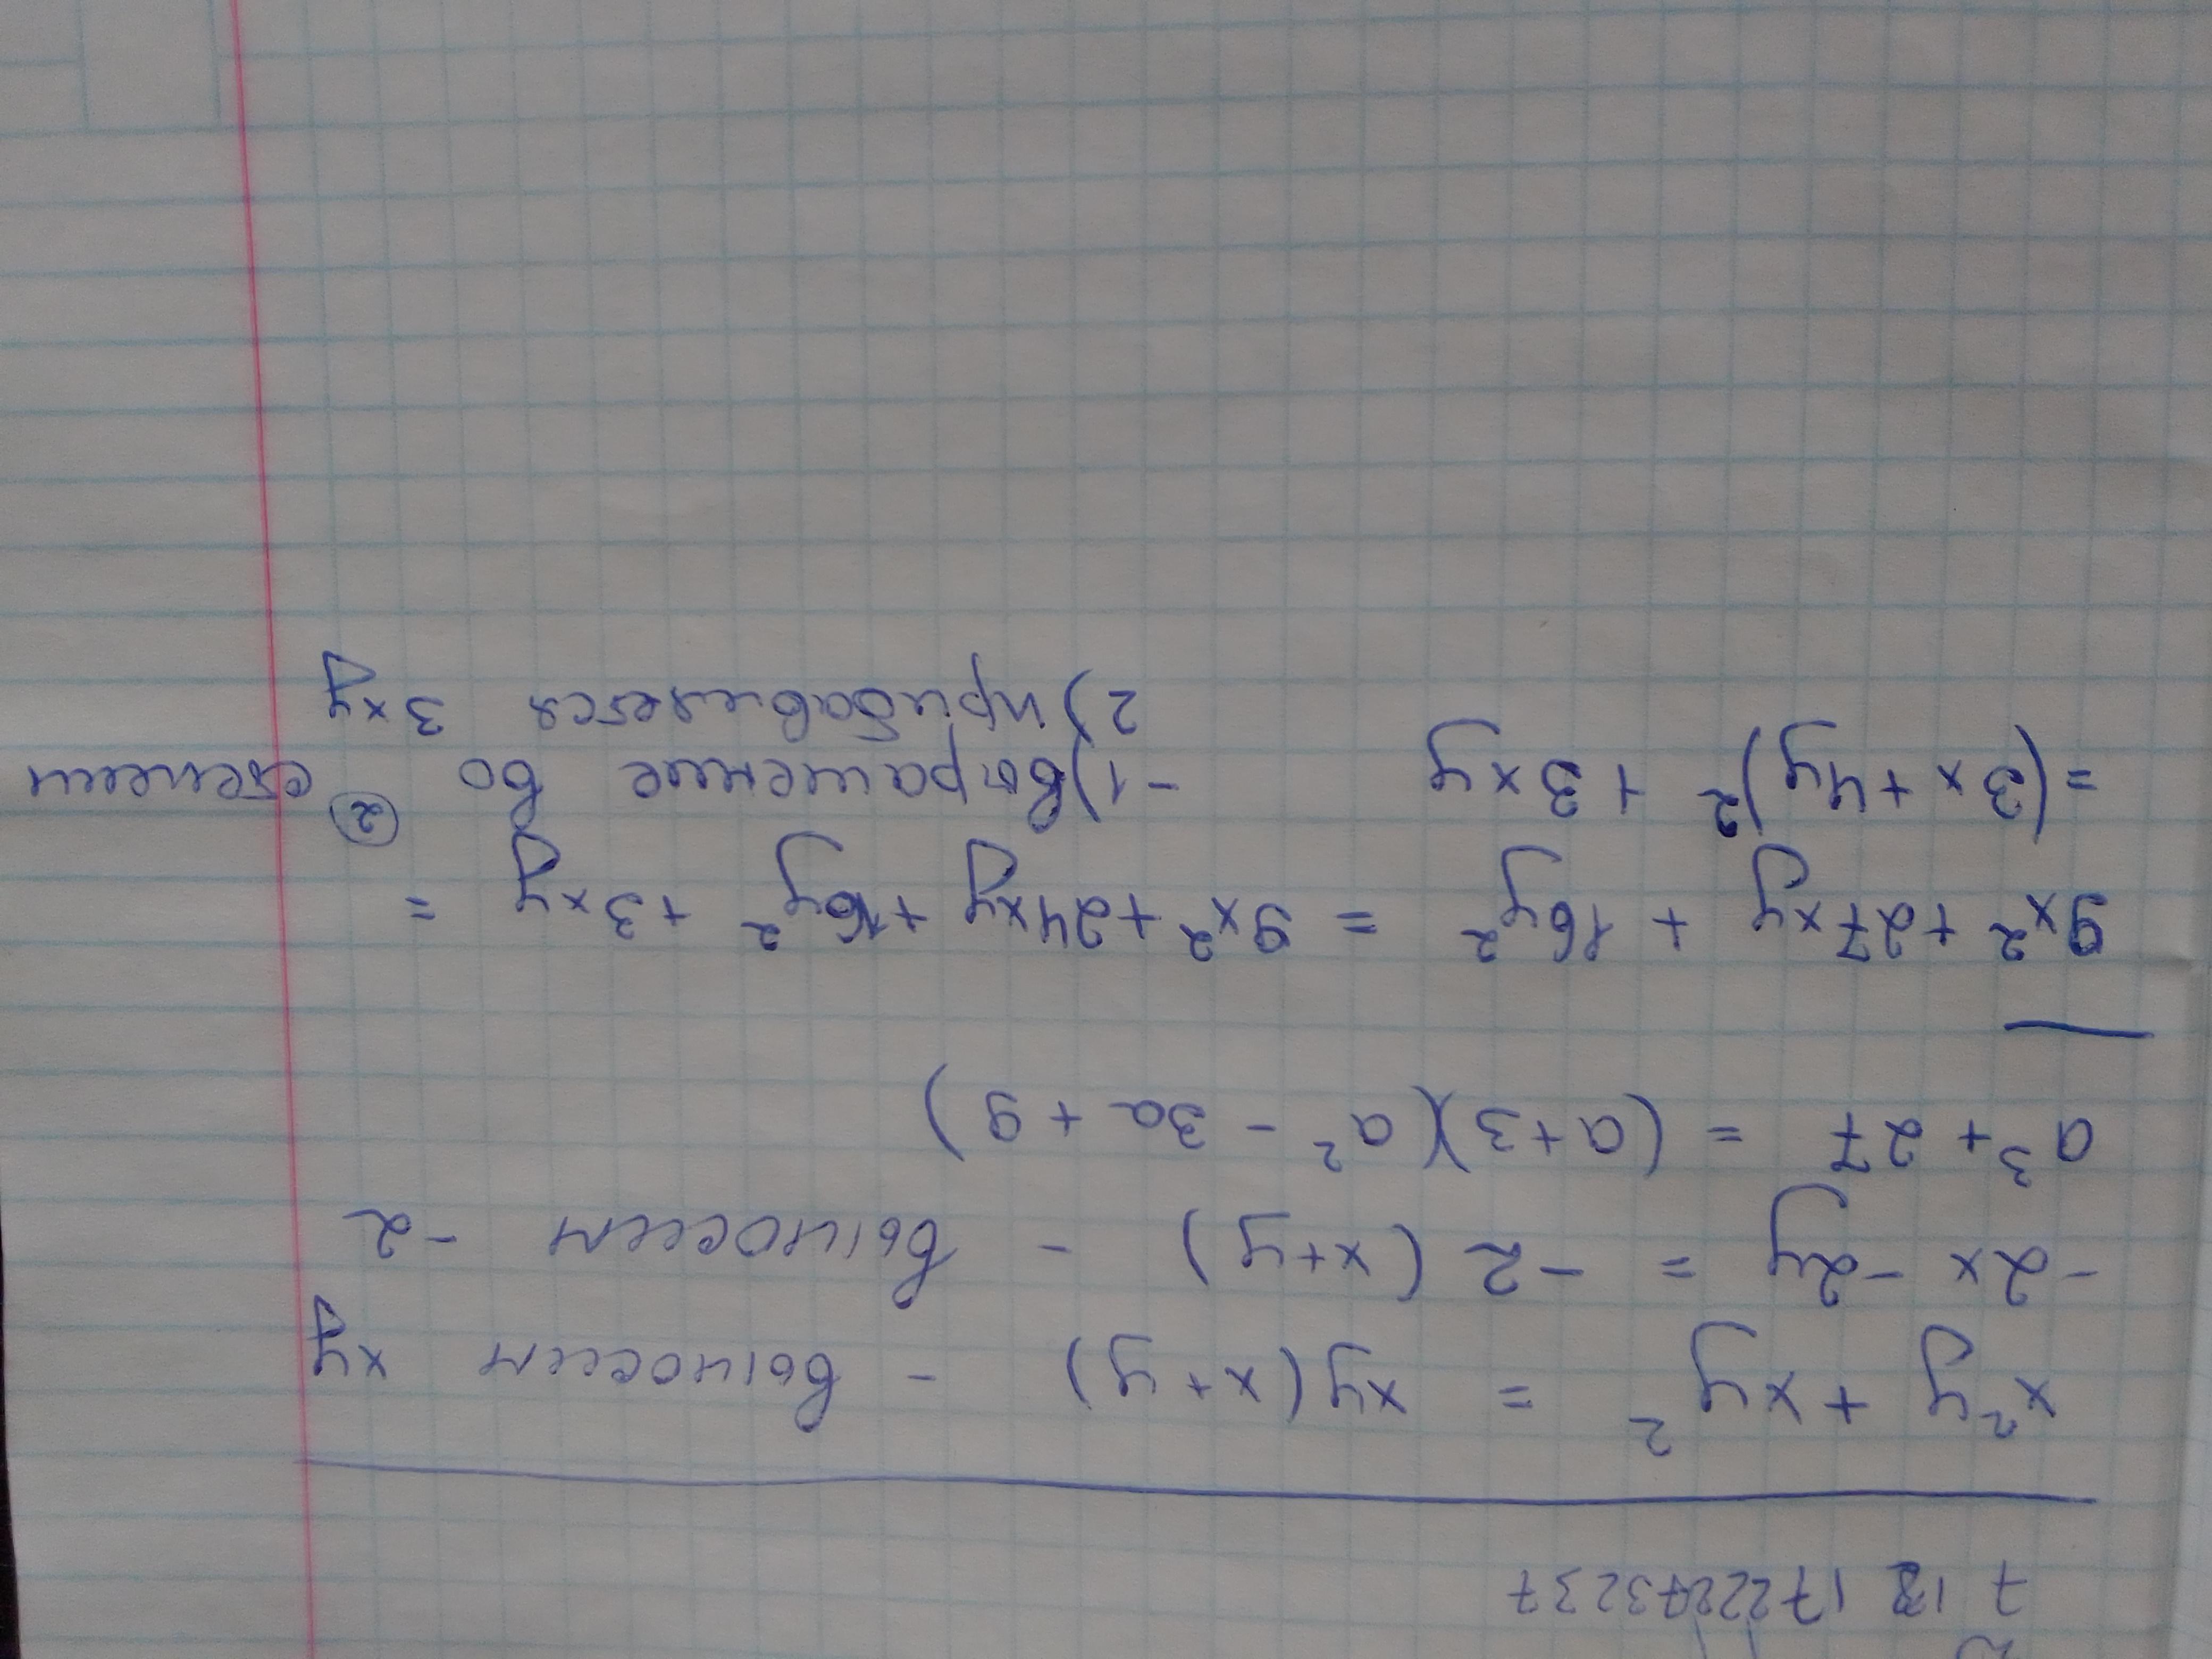 x²y + xy² = xy(x+y) - выносим xy
-2x -2y = -2(x+y) - выносим -2
a³ + 27 = (a+3)(a² - 3a + 9)
9x² + 27xy + 16y² = 9x² + 24xy + 16y² + 3xy =
= (3x + 4y)² + 3xy - 1) выражение во ② степени
2) прибавляется 3xy